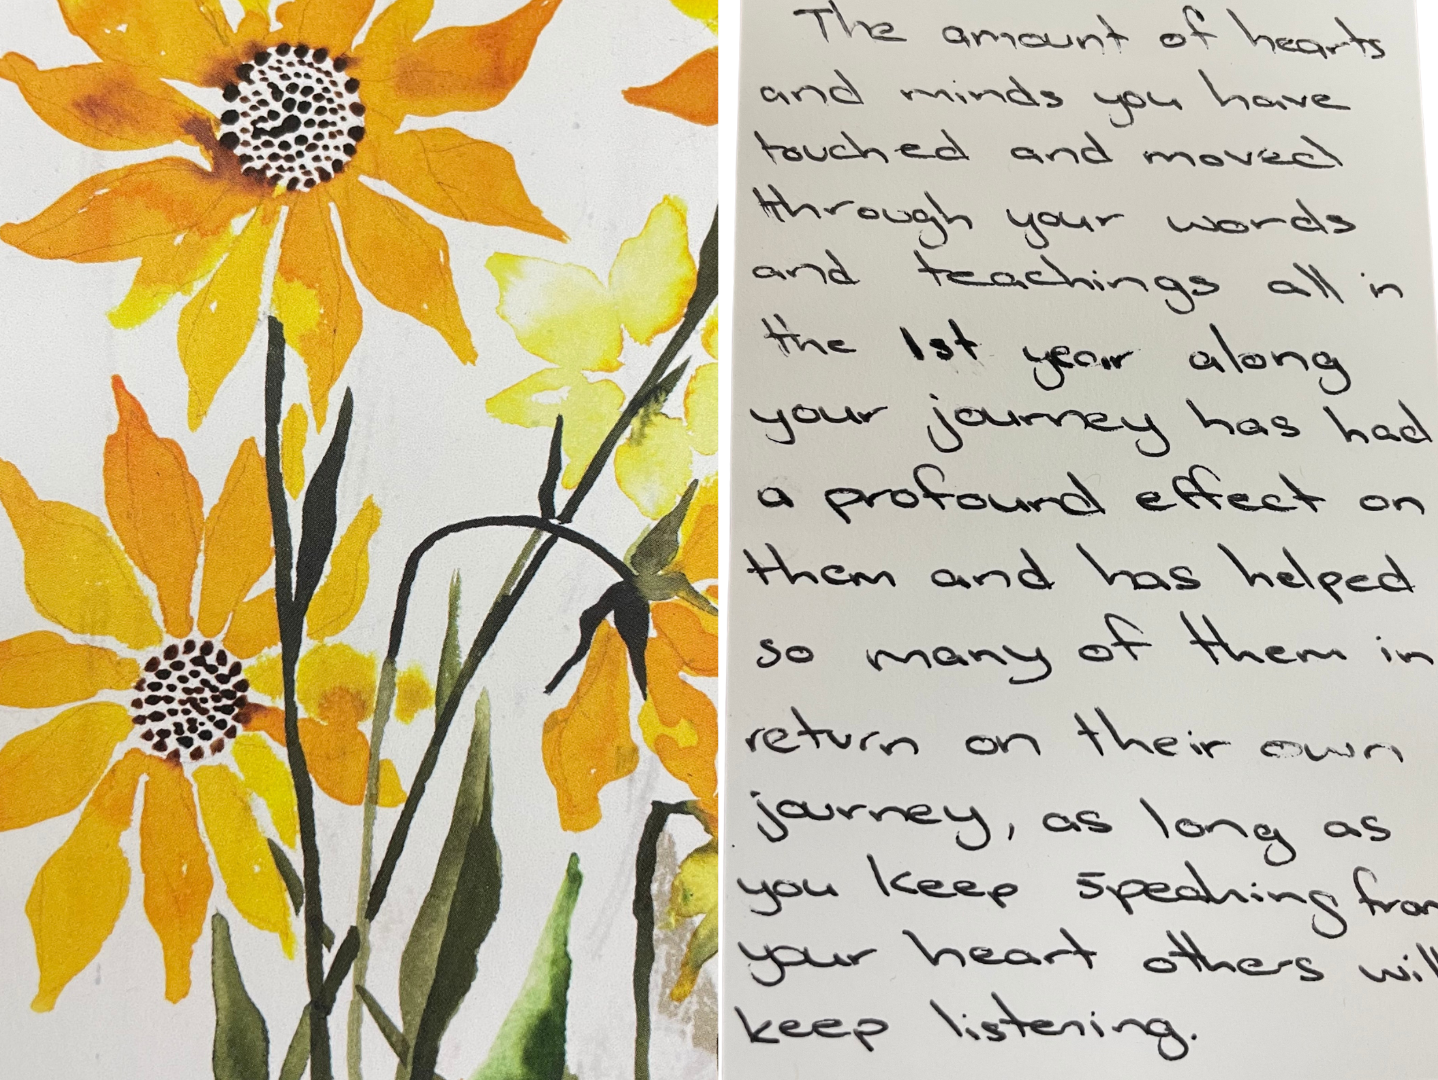 The amount of hearts
and minds you have
touched and moved
through your words
and teachings all in
the 1st year along
your journey has had
a profound effect on
them and has helped
so many of them in
return on their own
journey, as long as
you keep speaking from
your heart others will
keep listening.